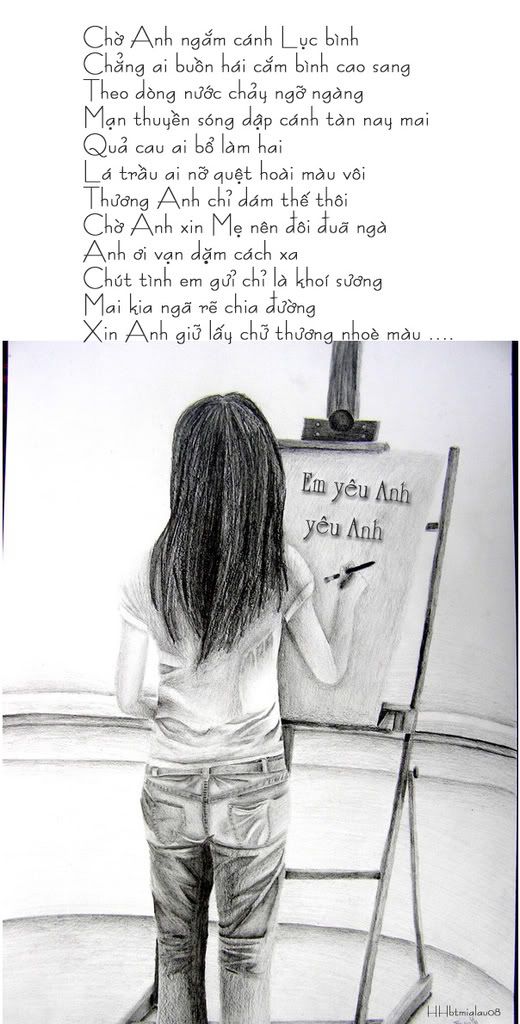 Chờ Anh ngắm cánh Lục bình
Chẳng ai buồn hái cắm bình cao sang
Theo dòng nước chảy ngỡ ngàng
Mạn thuyền sóng dập cánh tàn nay mai
Quả cau ai bổ làm hai
Lá trầu ai nỡ quệt hoài màu vôi
Thương Anh chỉ dám thế thôi
Chờ Anh xin Mẹ nên đôi đuã ngà
Anh ơi vạn dặm cách xa
Chút tình em gửi chỉ là khoí sương
Mai kia ngã rẽ chia đường
Xin Anh giữ lấy chữ thương nhoè màu ....
Em yêu Anh
yêu Anh
HHbtmialau08